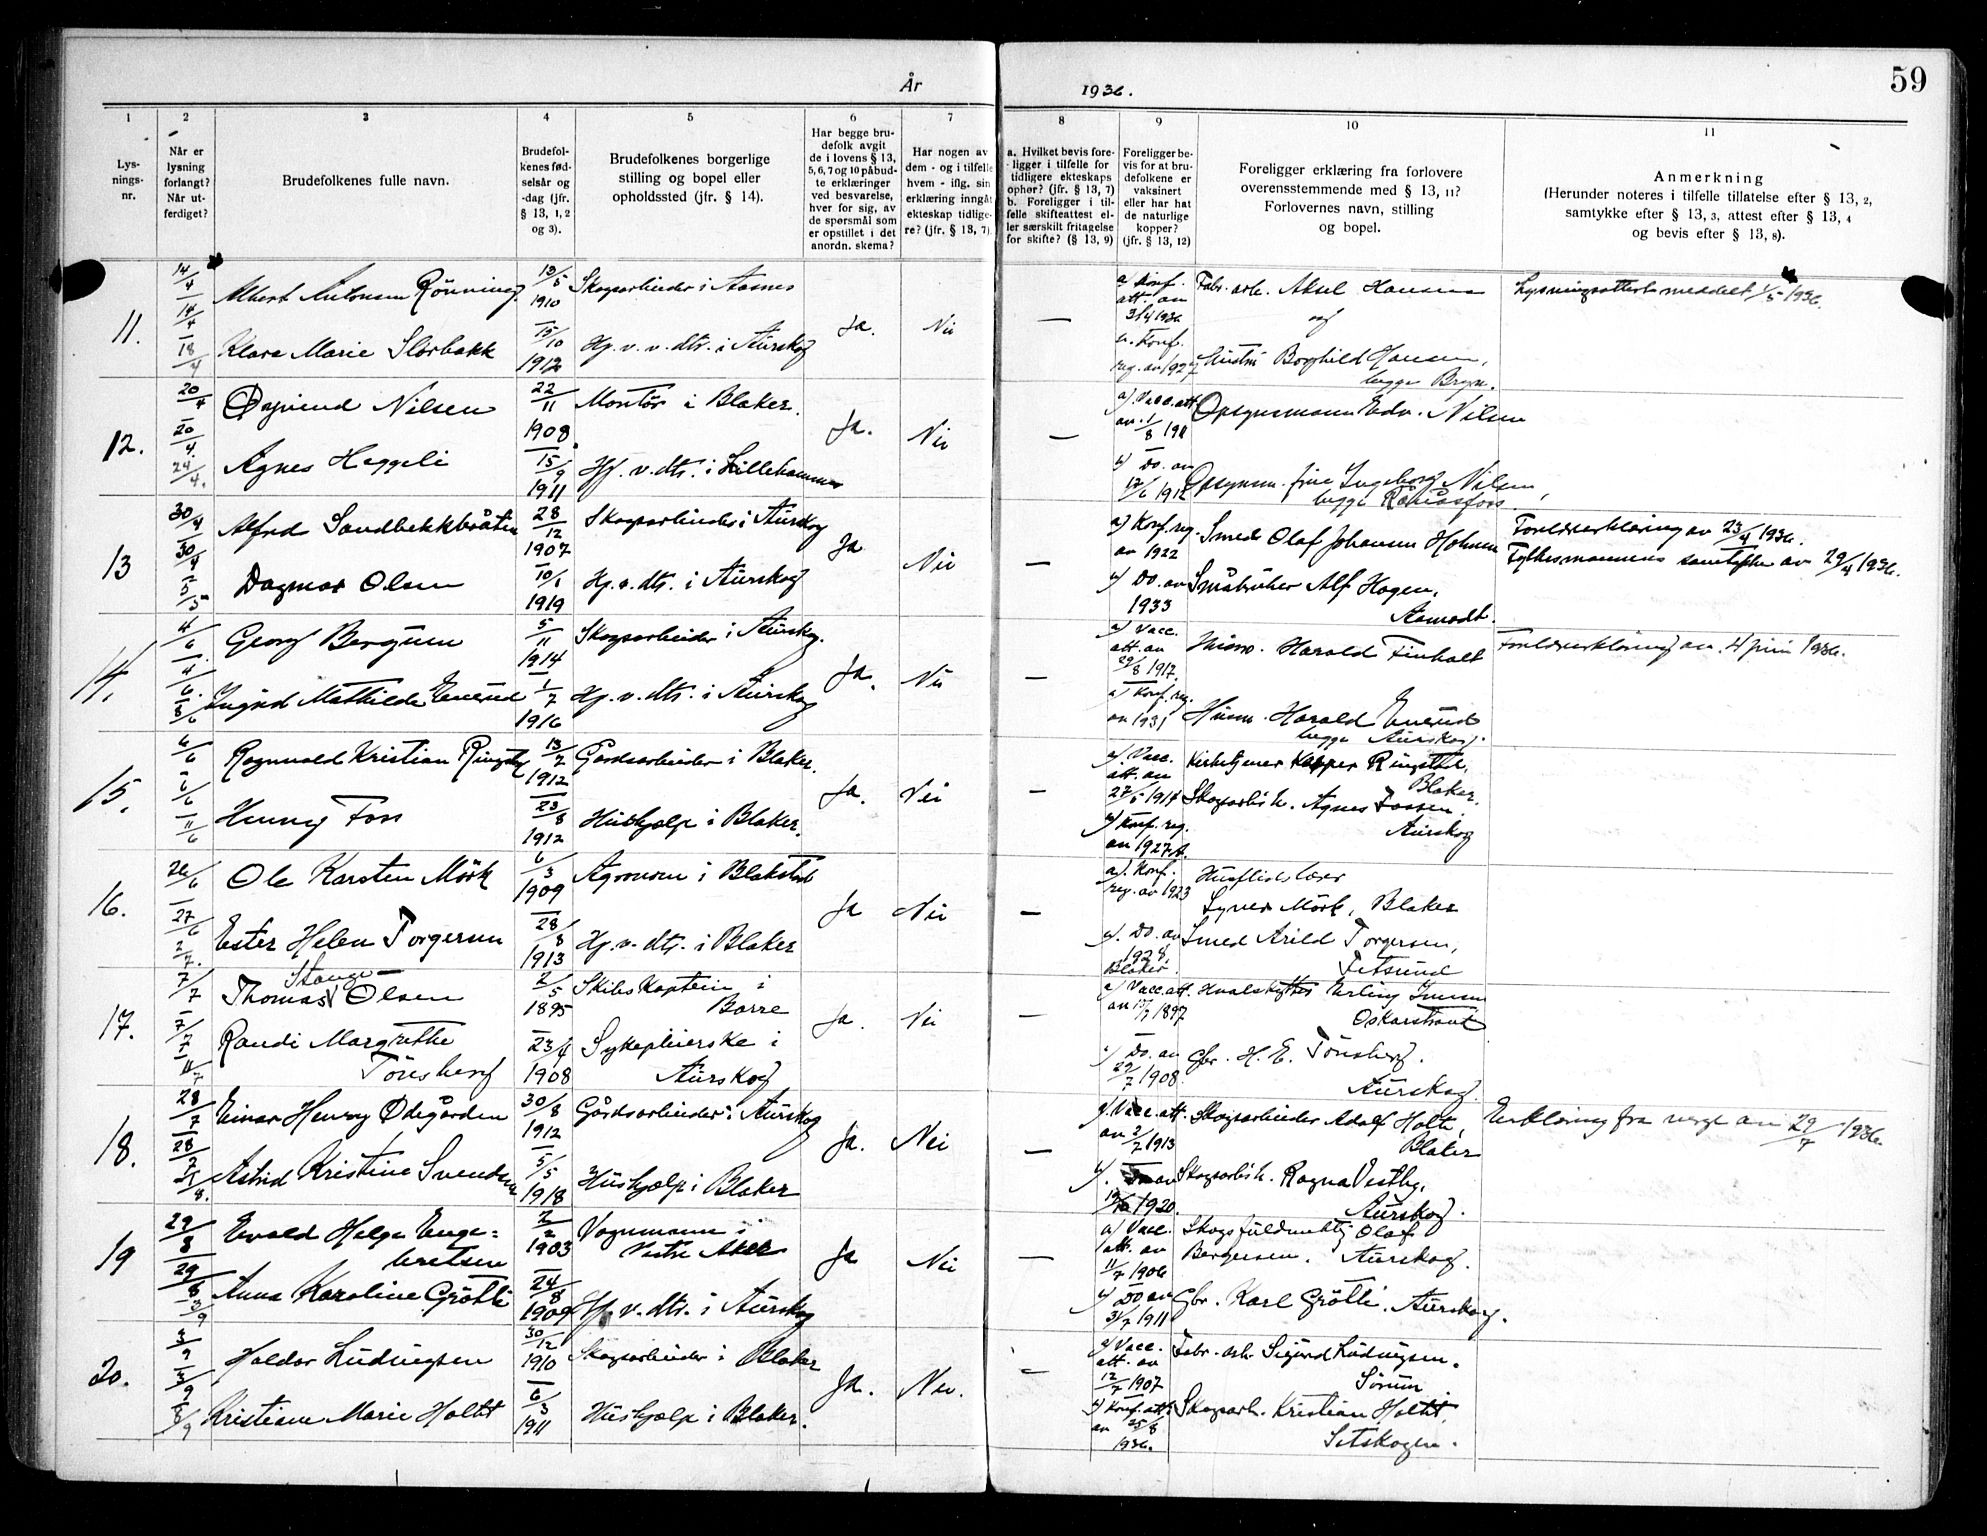 59
År 1936.
1 2 3 4 5 6 7 8 9 10 11
Lys-
nings-
nr.
Når er
lysning
forlangt?
Når ut-
ferdiget?
Brudefolkenes fulle navn.
Brudefol-
kenes fød-
selsår og
-dag (jfr.
§ 13, 1, 2
og 3).
Brudefolkenes borgerlige
stilling og bopel eller
opholdssted (jfr. § 14).
Har begge bru-
defolk avgit
de i lovens § 13,
5, 6, 7 og 10 påbud-
te erklæringer
ved besvarelse,
hver for sig, av
de spørsmål som
er opstillet i det
anordn. skema?
Har nogen av
dem - og i tilfelle
hvem - iflg. sin
erklæring inngåt
ekteskap tidlige-
re? (jfr. § 13, 7).
a. Hvilket bevis fore-
ligger i tilfelle for
tidligere ekteskaps
ophør? (jfr. § 13, 7)
b. Foreligger i til-
felle skifteattest el-
ler særskilt fritagelse
for skifte? (§ 13, 9)
Foreligger be-
vis for at bru-
defolkene er
vaksinert
eller har hat
de naturlige
kopper?
(jfr. § 13, 12)
Foreligger erklæring fra forlovere
overensstemmende med § 13, 11?
Forlovernes navn, stilling
og bopel.
Anmerkning
(Herunder noteres i tilfelle tillatelse efter § 13, 2,
samtykke efter § 13, 3, attest efter § 13, 4
og bevis efter § 13, 8).
11. 14/4 14/4 18/4
Albert Antonsen Rönning 13/5 1910 Skogsarbeider i Aasnes
Klara Marie Slorbakk 15/10 1912 Hj. v. v. dtr. i Aurskog
Ja. Nei —
a/ Konf. att. av 3/4 1936 Fabr. arb. Aksel Hansen
og
b. Konf. reg. av 1927 Hustru Borghild Hansen,
begge Bryn.
Lysningsattest meddelt 1/5 1936.
12. 20/4 20/4. 24/4.
Øyvind Nilsen 22/11 1908 Montör i Blaker.
Agnes Heggeli 15/9 1911 Hj. v. dtr. i Lillehammer
Ja. Nei —
a). Vacc. att. av 1/8 1911 Opsynsmann Edv. Nilsen
b) Do. av 12/6 1912 Opsynsm. frue Ingeborg Nilsen,
begge Rånåsfoss
13 30/4 30/4 5/5
Alfred Sandbekkbråten 28/12 1907 Skogsarbeider i Aurskog
Dagmar Olsen 10/1 1919 Hj. v. dtr. i Aurskog
Ja Nei —
a) Konf. reg. av 1922 Smed Olaf Johansen Holmen
b) Do. av 1933 Småbruker Alf Hagen,
Aamodt.
Foreldreerklæring av 23/4 1936.
Fylkesmannens samtykke av 29/4 1936.
14. 4/6 4/6. 8/6
Georg Bergum 5/11 1914 Skogsarbeider i Aurskog.
Ingrid Mathilde Enerud 1/7 1916 Hj. v. dtr. i Aurskog
Ja. Nei —
a) Vacc. att. av 29/8 1917. Husm. Harald Finholt
a) Konf. reg. av 1931 Husm. Harald Enerud
begge Aurskog.
Foreldreerklæring av 4 juni 1936.
15. 6/6 6/6 11/6
Ragnvald Kristian Ringstad 13/2 1912 Gårdsarbeider i Blaker.
Henny Foss 23/8 1912 Hushjelp i Blaker.
Ja. Nei —
a). Vacc. att. av 27/5 1914 Kirketjener Kasper Ringstad,
Blaker.
b) Konf. reg. av 1927 Skogsarb. h. Agnes Fossen
Aurskog
16. 26/6 27/6 2/7.
Ole Karsten Mörk 6/3 1909 Agronom i Blakstad
Ester Helen Torgersen 28/8 1913 Hj. v. dtr. i Blaker
Ja Nei —
a). Konf. reg. av 1923 Husflidslærer
Syver Mörk, Blaker
b). Do. av 1928, Blaker. Smed Arild Torgersen,
Fetsund
17. 7/7 7/7 11/7
Stange
Thomas Olsen 2/5 1895 Skibskaptein i
Borre
Randi Margrethe
Tönsberg 23/4 1908 Sykepleierske i
Aurskog
Ja. Nei —
a) Vacc. att. av 1897 Hvalskytter Erling
b) Do. av 29/7 1908 Gbr. H. E. Tönsberg.
Aurskog.
18. 28/7 28/7 8.
Einar Henry Ødegården 30/8 1912 Gårdsarbeider i Aurskog
Astrid Kristine Svendsen 5/5 1918 Hushjelp i Blaker
Ja. Nei —
a). Vacc. att. av 2/2 1913 Skogsarbeider Adolf Holt,
Blaker
b). Do av 1920. Skogsarb. h. Ragna Vestby,
Aurskog.
Erklæring fra verge av 29/7 1936.
19 29/8 29/8 3/9
Evald Helge Enge=
bretsen 2/2 1903 Vognmann i
Vestre Aker
Anna Karoline Grötli 24/8 1909 Hj. v. dtr. i Aurskog
Ja Nei —
a) Vacc. att. av 11/7 1906 Skogsfuldmektig Olaf
Bergersen. Aurskog.
b) Do av 31/7 1911 Gbr. Karl Grötli. Aurskog.
20. 3/9 3/9 8/9
Haldor Ludvigsen 30/12 1910 Skogsarbeider i Blaker
Kristiane Marie Holtet 6/3 1911 Hushjelp i Blaker.
Ja. Nei. —
a) Vacc. att. av 12/7 1907 Fabr. arb. Sigurd Ludvigsen.
Sörum
b) Konf. att. av 25/8 1936. Skogsarb. Kristian Holtet,
Setskogen.